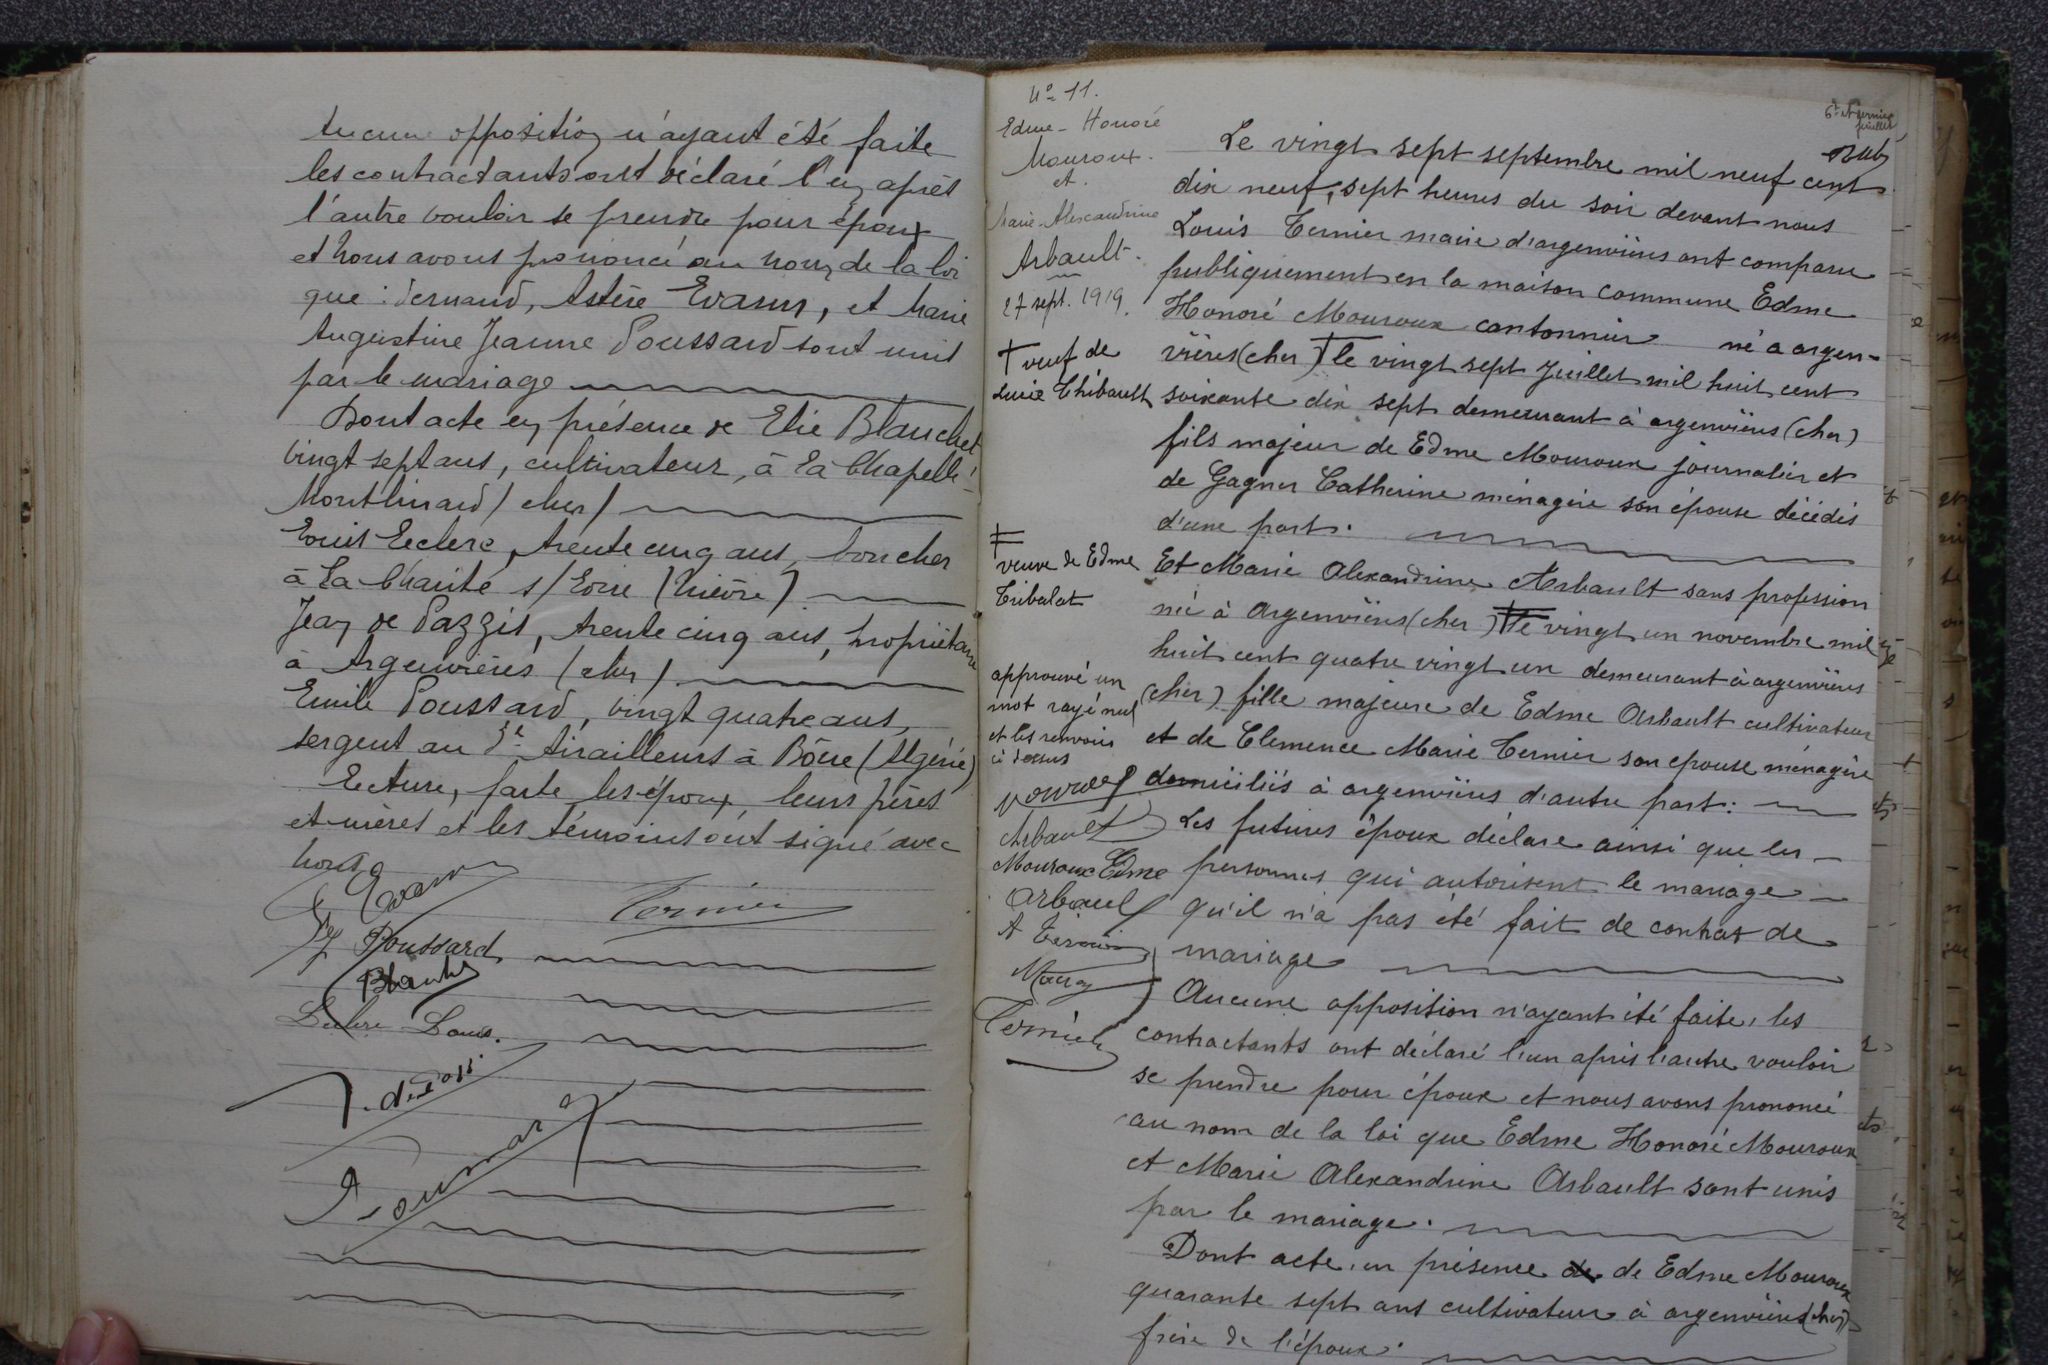 Aucune opposition n'ayant été faite
les contractants ont déclaré l'un après
l'autre vouloir se prendre pour époux
et nous avons prononcé au nom de la loi
que : Fernand, Astère Evarm, et Marie
Augustine Jeanne Poussard sont unis
par le mariage
Dont acte en présence de Elie Blanchet
vingt sept ans, cultivateur, à La Chapelle-
Montlinard (cher)
Louis Leclerc, trente cinq ans, boucher
à La Charité s/ Loire (Nièvre)
Jean de Pazzis, trente cinq ans, propriétaire
à Argenvières (cher)
Emile Poussard, vingt quatre ans,
sergent au 3e tirailleurs à Bône (Algérie)
Lecture, faite les époux, leurs pères
et mères et les témoins ont signé avec
nous
Ternier
Poussard
Blanchet
Leclerc Louis.
No 11.
Edme-Honoré
Mouroux.
et.
Marie-Alexandrine
Arbault.
27 sept. 1919.
veuf de
Lucie Thibault
veuve de Edme
Tribalat
approuvé un
mot rayé nul
et les renvois
ci dessus
Arbault
Mouroux Edme
Arbault
A Ternier
Ternier
6e et dernier
feuillet
Le vingt sept septembre mil neuf cent
dix neuf, sept heures du soir devant nous
Louis Ternier maire d'argenvières ont comparu
publiquement en la maison commune Edme
Honoré Mouroux cantonnier né a argen-
vières (cher) le vingt sept Juillet mil huit cent
soixante dix sept demeurant à argenvières (cher)
fils majeur de Edme Mouroux journalier et
de Gagner Catherine ménagère son épouse décédés
d'une part.
Et Marie Alexandrine Arbault sans profession
née à argenvières (cher) le vingt un novembre mil
huit cent quatre vingt un demeurant à argenvières
(cher) fille majeure de Edme Arbault cultivateur
et de Clemence Marie Ternier son epouse ménagère
domiciliés à argenvières d'autre part.
Les futures époux déclare ainsi que les
personnes qui autorisent le mariage
qu'il n'a pas été fait de contrat de
mariage
Aucune opposition n'ayant été faite, les
contractants ont déclaré l'un après l'autre vouloir
se prendre pour époux et nous avons prononcé
au nom de la loi que Edme Honoré Mouroux
et Marie Alexandrine Arbault sont unis
par le mariage.
Dont acte, en présence de de Edme Mouroux
quarante sept ans cultivateur à argenvières (cher)
frère de l'époux.